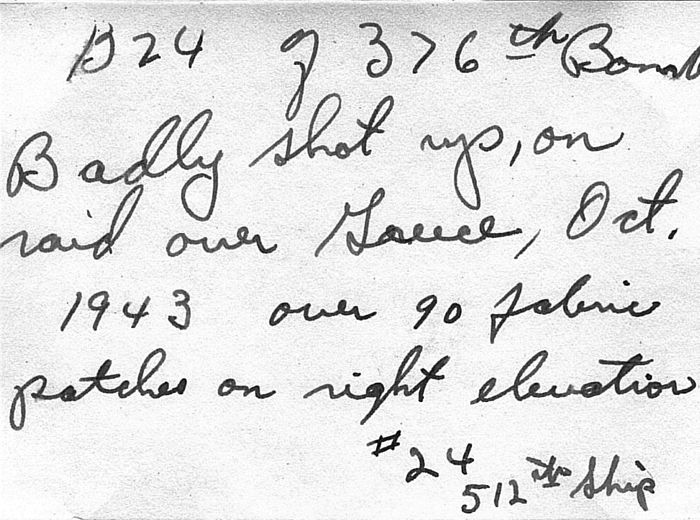 B24 of 376th Bomb
Badly shot up, on
raid over Greece, Oct.
1943 over 90 fabric
patches on right elevation
#24
512th ship